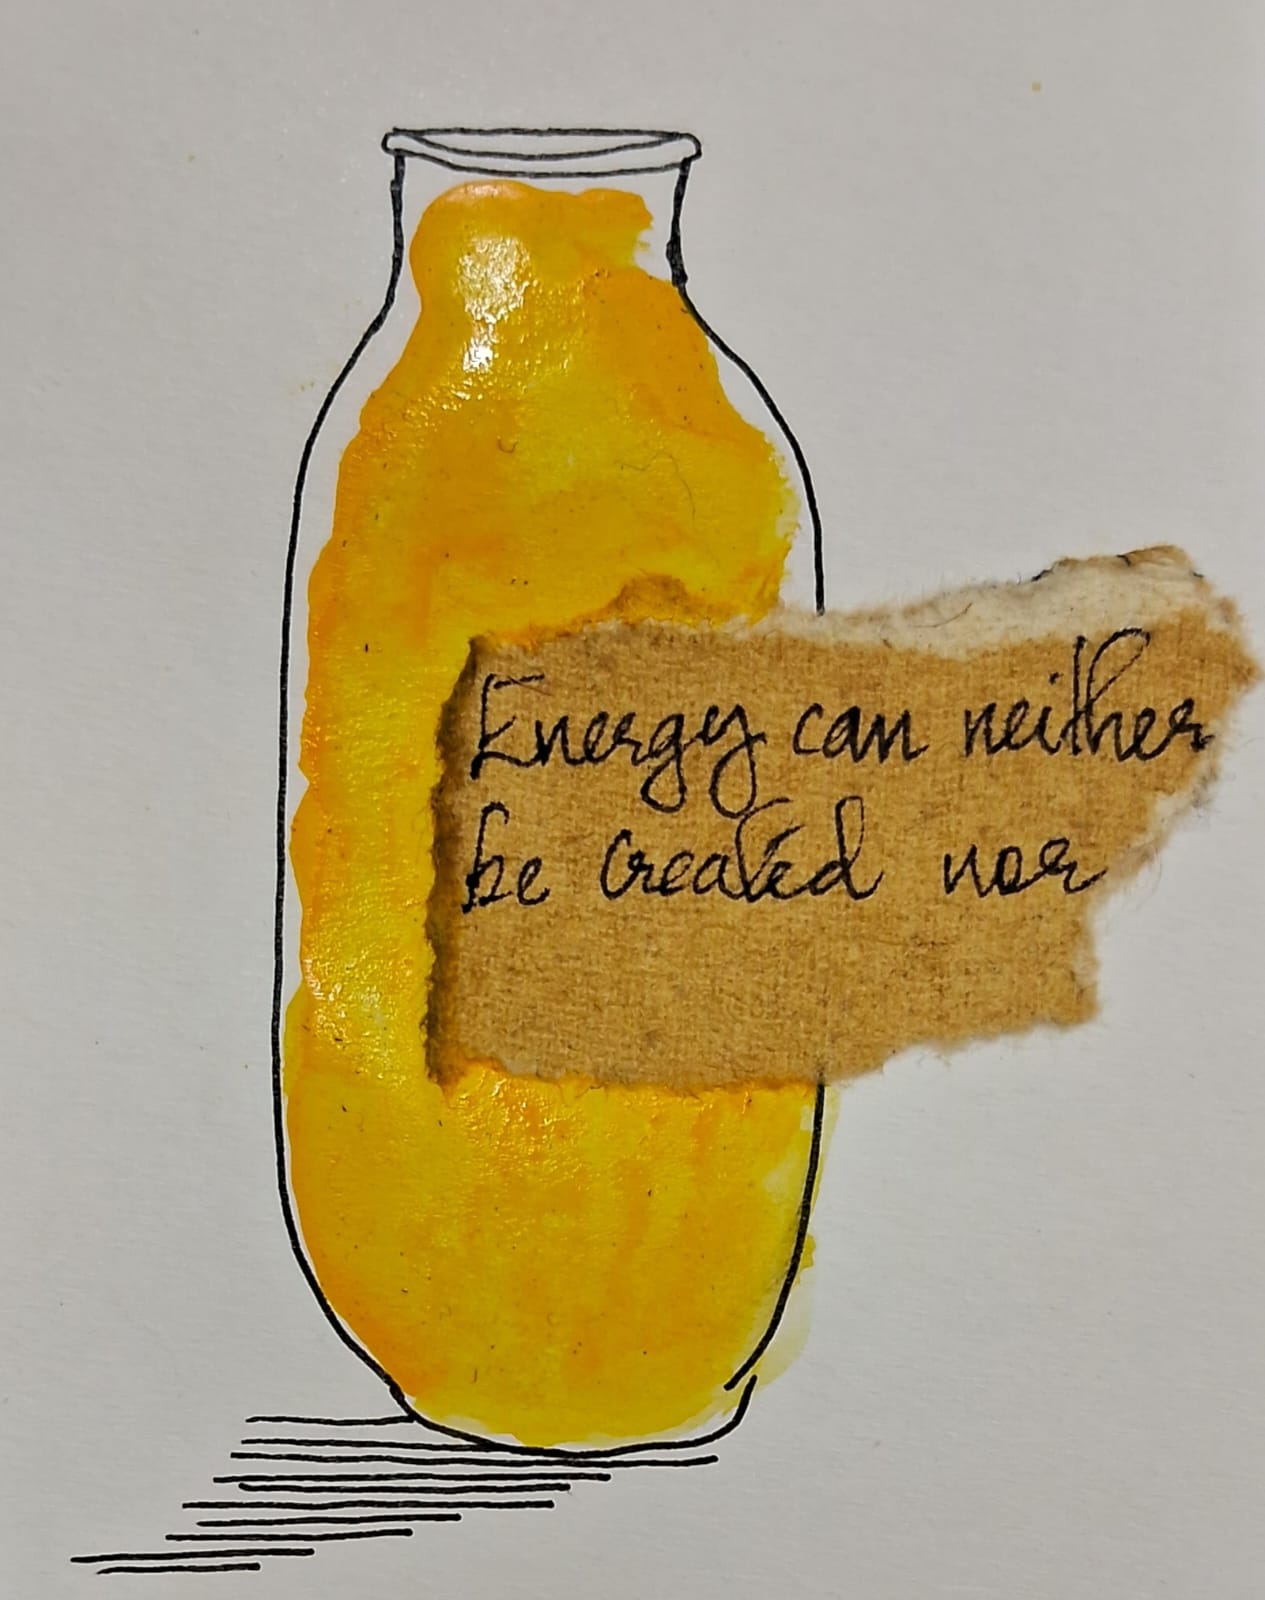 Energy can neither
be created nor